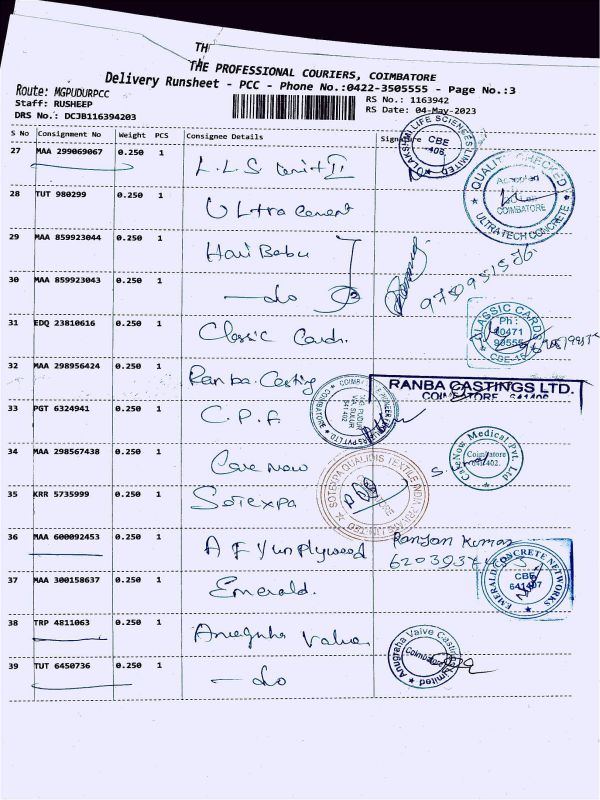 TH
THE PROFESSIONAL COURIERS, COIMBATORE
Delivery Runsheet - PCC - Phone No.:0422-3505555 - Page No.:3
Route: MGPUDURPCC
RS No.: 1163942
Staff: RUSHEEP
RS Date: 04-May-2023
DRS No.: DCJB116394203
S No Consignment No Weight PCS Consignee Details Signature
27 MAA 299069067 0.250 1 L.L.S Unit II
CBE
28 TUT 980299 0.250 1 Ultra Cement
QUALITY CHECKED
COIMBATORE
ULTRATECH CONCRETE
29 MAA 859923044 0.250 1 Hari Babu
30 MAA 859923043 0.250 1 - do
31 EDQ 23810616 0.250 1 Classic Cards.
CLASSIC CARDS
Ph :
32 MAA 298956424 0.250 1 Ranba Casting
RANBA CASTINGS LTD.
COIMBATORE 641406
33 PGT 6324941 0.250 1 C.P.F.
34 MAA 298567438 0.250 1 Care Now
CareNow Medical Pvt Ltd
Coimbatore
641402.
35 KRR 5735999 0.250 1 Sotexpa
36 MAA 600092453 0.250 1
Ranjan Kumar
37 MAA 300158637 0.250 1 Emerald.
EMERALD CONCRETE NETWORKS
CBE
641407
38 TRP 4811063 0.250 1 Anugraha Valve
Anugraha Valve Castings Limited
Coimbatore
39 TUT 6450736 0.250 1 - do